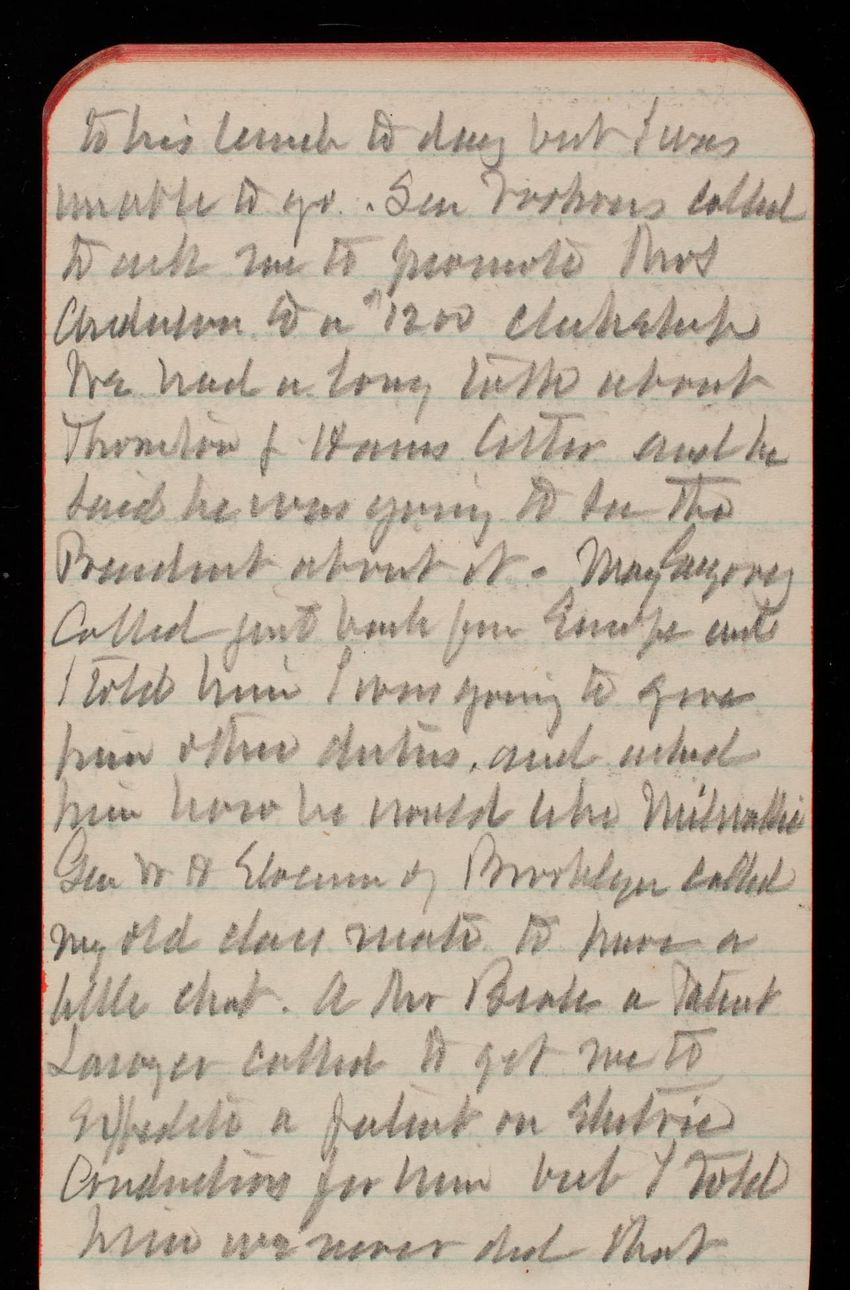 to his lunch to day but I was
unable to go. Sen Voohees called
to ask me to promote Mrs
Anderson to a $1200 clerkship
We had a long talk about
Thornton & Harris letter and he
said he was going to see the
President about it. May Gregory
called just back from Europe and
I told him I was going to give
him other duties, and asked
him how he would like Milwaukie
Gen W H Slocum of Brooklyn called
my old class mate to have a
little chat. A Mr Beale a Patent
Lawyer called to get me to
expedite a patent on Electric
Conductors for him but I told
him we never did that